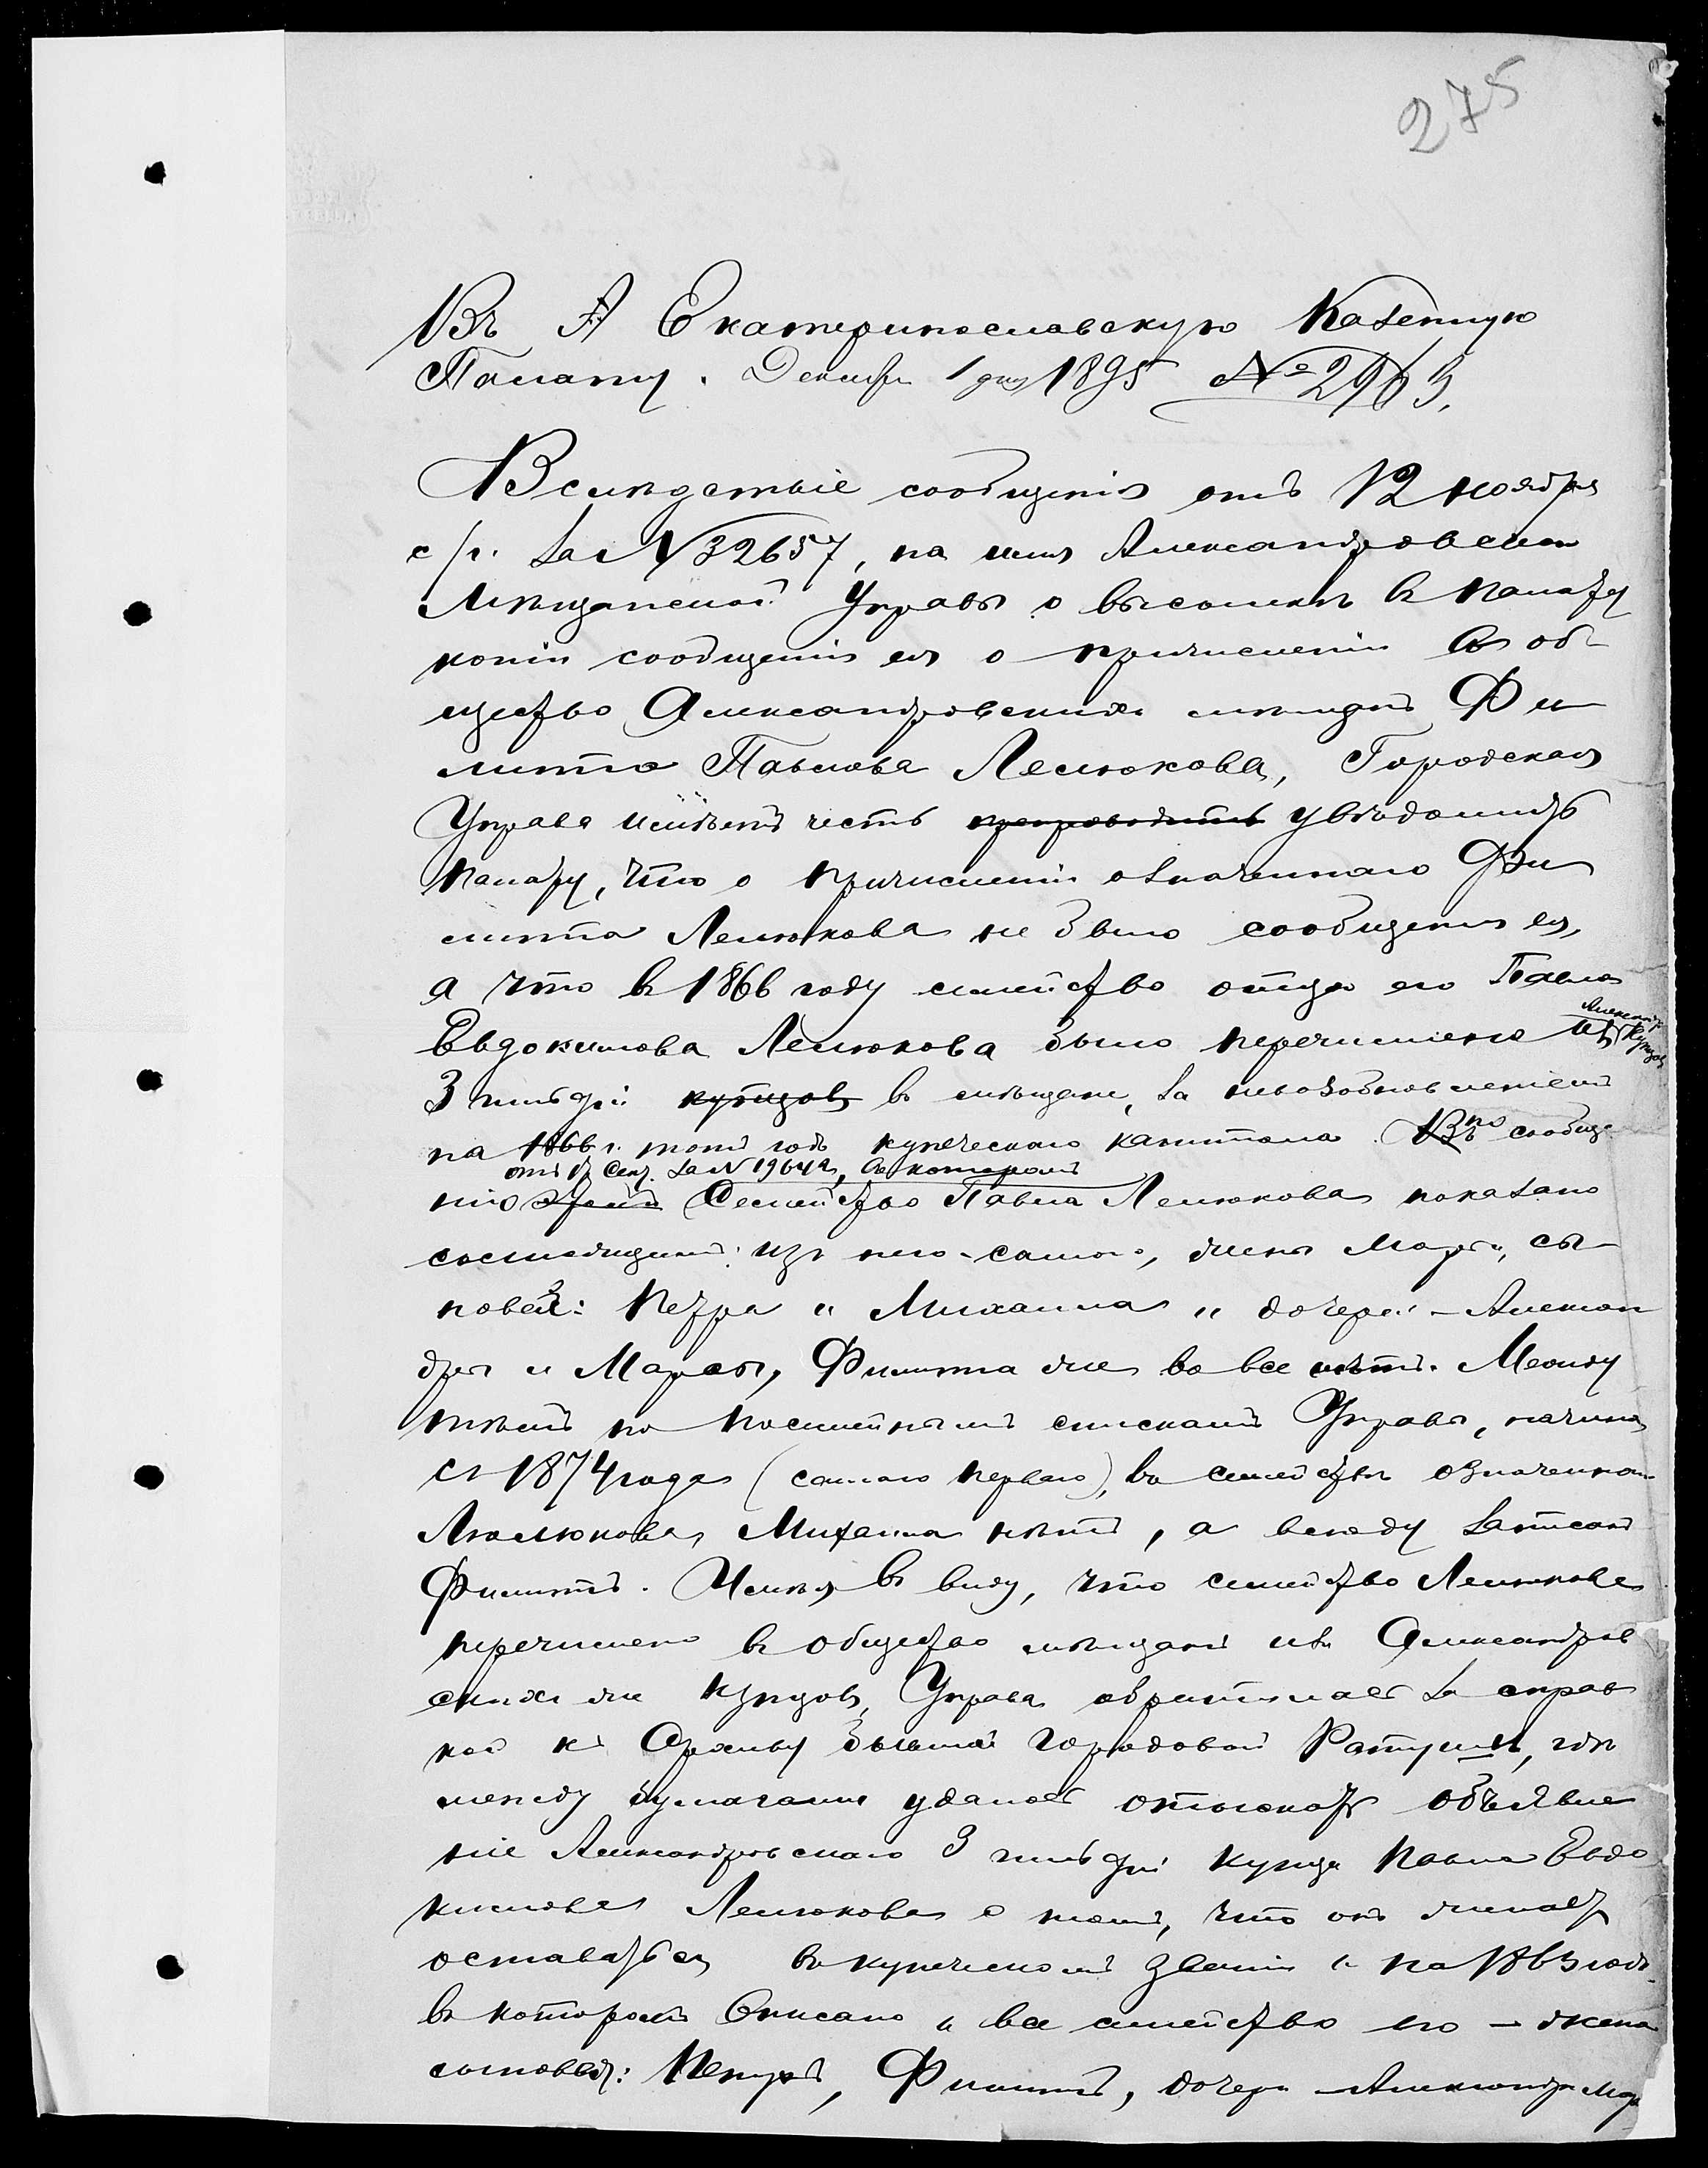 275
Въ Екатеринославскую Казенную
Палату. Декабря 1 дня 1895 № 2963.
Вследствіе сообщенія отъ 12 ноября
с/г. за № 32657, на имя Александровской
Мѣщанской Управы о высылкѣ въ Палату
копіи сообщенія ея о причисленіи въ об-
щество Александровскихъ мѣщанъ Фи
липпа Павлова Лелюкова, Городская
Управа имѣетъ честь препроводить увѣдомить
Палату, что о причисленіи означеннаго Фи
липпа Лелюкова не было сообщенія ея,
а что въ 1866 году семейство отца его Павла
Евдокимова Лелюкова было перечислено изъ Александр. Купцовъ
3 гильдіи купцовъ въ мѣщане, за невозобновленіемъ
на 1866 г. тотъ годъ купеческаго капитала. Въ по сообще
отъ Сент. за № 19642, въ которомъ
нію этомъ Семейство Павла Лелюкова показано
состоящимъ: изъ него-самого, жены Марфы, сы-
новей: Петра и Михаила и дочерей - Александ
ры и Марфы, Филиппа же вовсе нѣтъ. Между
тѣмъ по посемейнымъ спискамъ Управы, начиная
съ 1874 года (самаго перваго), въ семействѣ означеннаго
Лелюкова, Михаила нѣтъ, а всюду записанъ
Филиппъ. Имѣя въ виду, что семейство Лелюкова
перечислено въ общество мѣщанъ изъ Александров
скихъ же купцовъ, Управа обратилась за справ
кой къ Архиву бывшей городовой Ратуши, гдѣ
между бумагами удалось отыскать объявле
ніе Александровскаго 3 гильдіи купца Павла Евдо
кимова Лелюкова о томъ, что онъ желаетъ
оставаться въ купеческомъ званіи и на 1863 годъ
въ которомъ вписано и все семейство его - жена
сыновей: Петръ, Филиппъ, дочери - Александра Мар